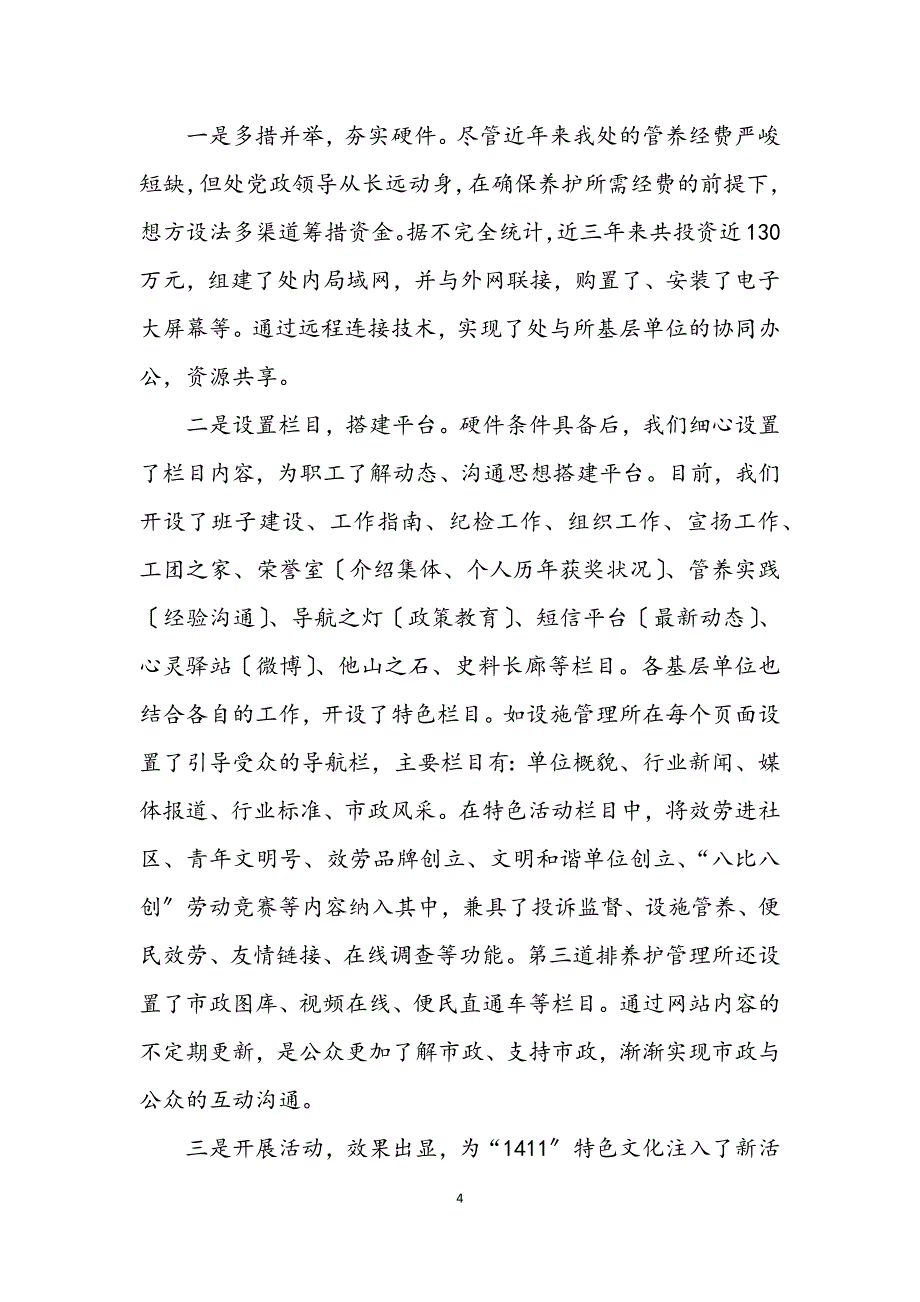 一是多措并举，夯实硬件。尽管近年来我处的管养经费严峻
短缺，但处党政领导从长远动身，在确保养护所需经费的前提下，
想方设法多渠道筹措资金。据不完全统计，近三年来共投资近 130
万元，组建了处内局域网，并与外网联接，购置了、安装了电子
大屏幕等。通过远程连接技术，实现了处与所基层单位的协同办
公，资源共享。
二是设置栏目，搭建平台。硬件条件具备后，我们细心设置
了栏目内容，为职工了解动态、沟通思想搭建平台。目前，我们
开设了班子建设、工作指南、纪检工作、组织工作、宣扬工作、
工团之家、荣誉室〔介绍集体、个人历年获奖状况〕、管养实践
〔经验沟通〕、导航之灯〔政策教育〕、短信平台〔最新动态〕、
心灵驿站〔微博〕、他山之石、史料长廊等栏目。各基层单位也
结合各自的工作，开设了特色栏目。如设施管理所在每个页面设
置了引导受众的导航栏，主要栏目有：单位概貌、行业新闻、媒
体报道、行业标准、市政风采。在特色活动栏目中，将效劳进社
区、青年文明号、效劳品牌创立、文明和谐单位创立、“八比八
创〞劳动竞赛等内容纳入其中，兼具了投诉监督、设施管养、便
民效劳、友情链接、在线调查等功能。第三道排养护管理所还设
置了市政图库、视频在线、便民直通车等栏目。通过网站内容的
不定期更新，是公众更加了解市政、支持市政，渐渐实现市政与
公众的互动沟通。
三是开展活动，效果出显，为“1411〞特色文化注入了新活
4